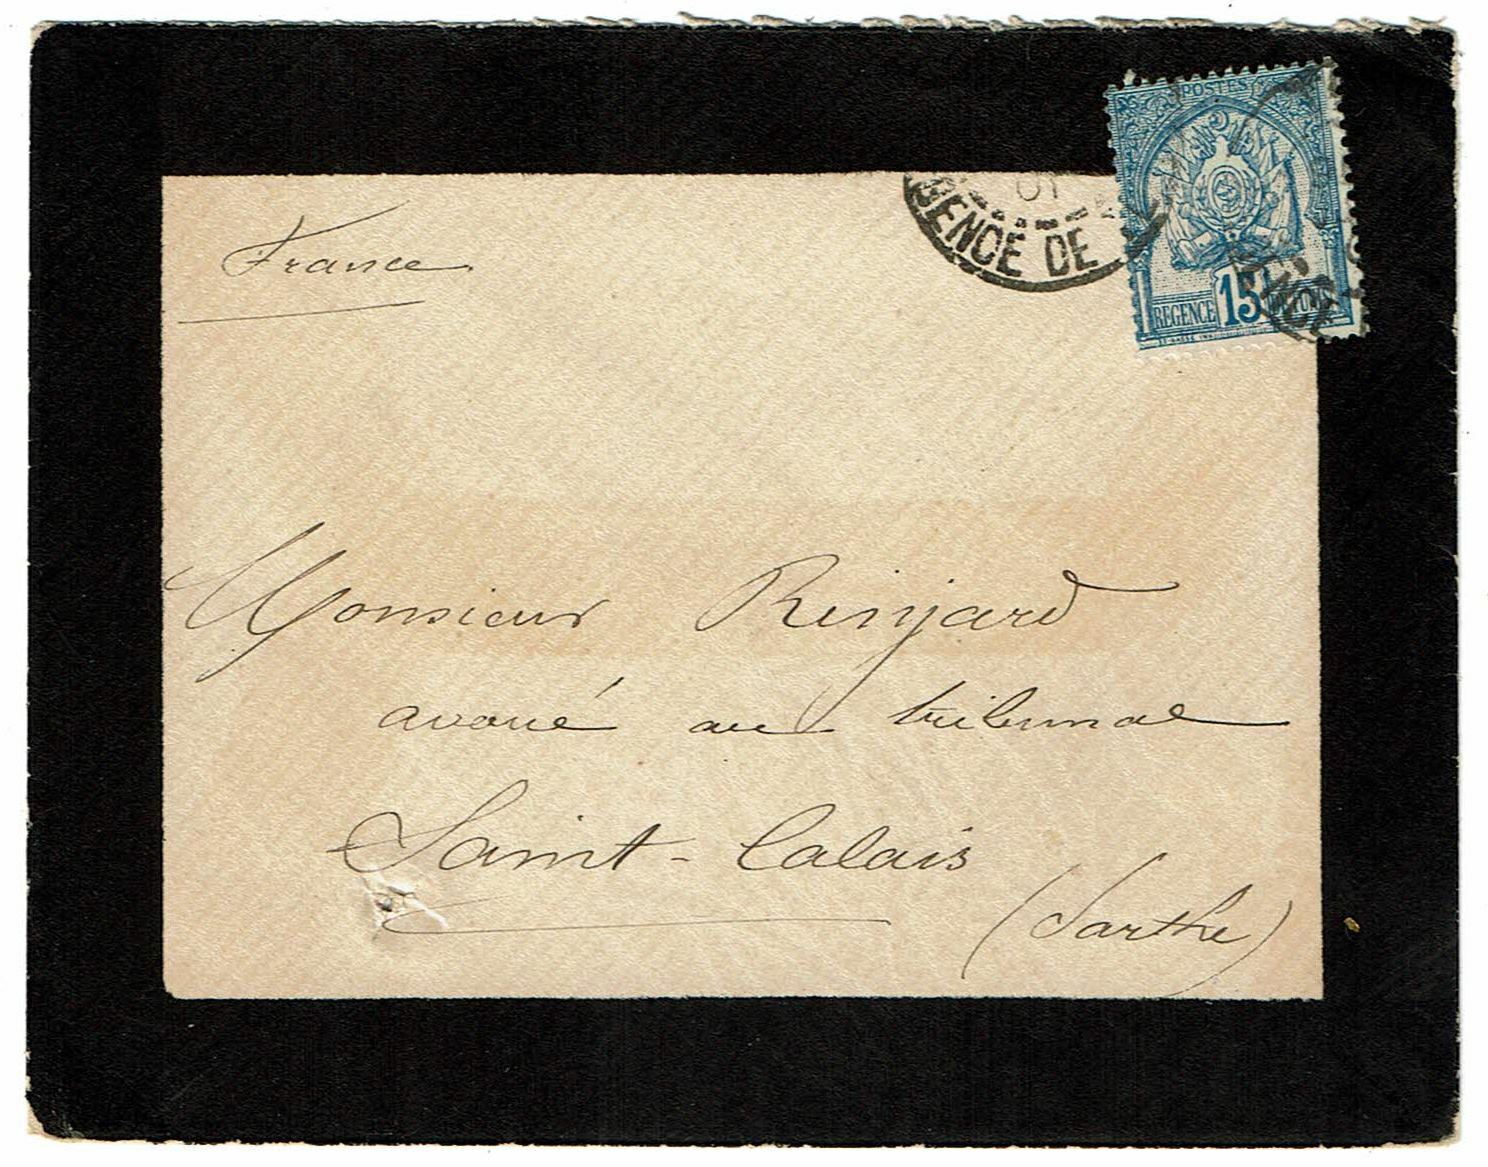 France
POSTES
01
GENCE DE
REGENCE 15
Monsieur Rinjard
avoué au tribunal
Saint-Calais
(Sarthe)